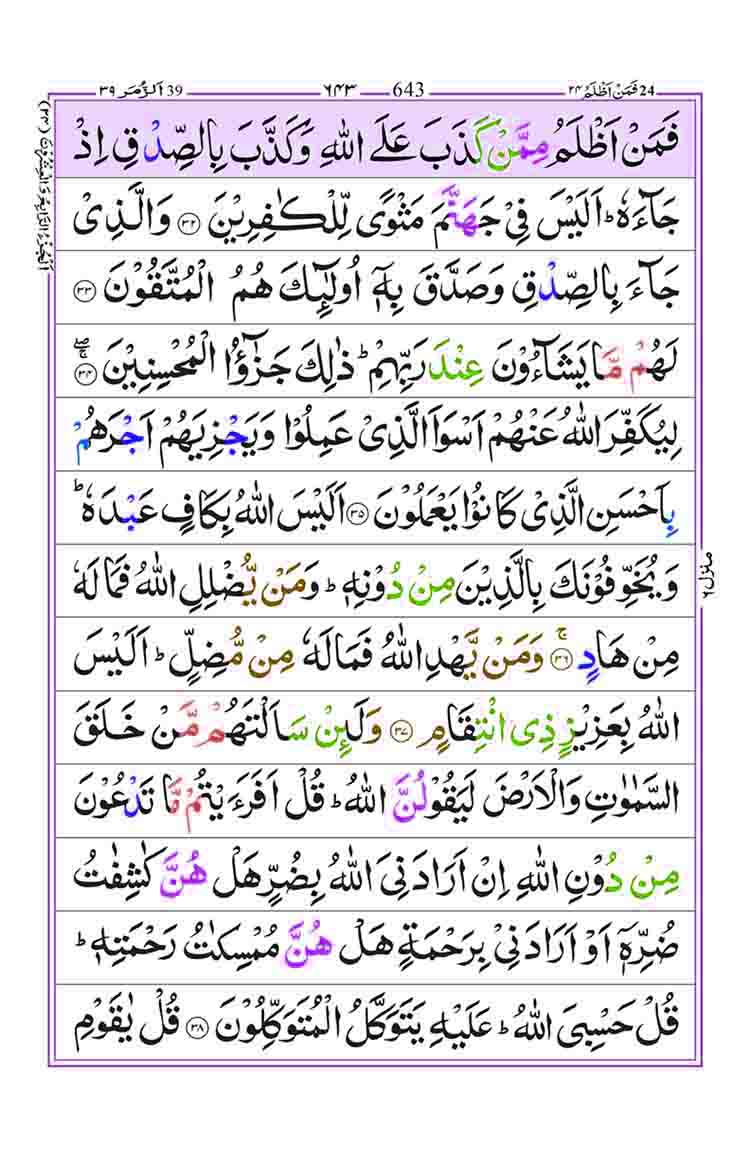 39 اَلزُّمَر ٣٩ ــ ٦٤٣ ــ 643 ــ ٢٤ فَمَنْ اَظْلَمُ 24
فَمَنْ اَظْلَمُ مِمَّنْ كَذَبَ عَلَى اللّٰهِ وَكَذَّبَ بِالصِّدْقِ اِذْ
جَآءَهٗ ؕ اَلَيْسَ فِيْ جَهَنَّمَ مَثْوًى لِّلْكٰفِرِيْنَ ۝۳۲ وَالَّذِيْ
جَآءَ بِالصِّدْقِ وَصَدَّقَ بِهٖۤ اُولٰٓئِكَ هُمُ الْمُتَّقُوْنَ ۝۳۳
لَهُمْ مَّا يَشَآءُوْنَ عِنْدَ رَبِّهِمْ ؕ ذٰلِكَ جَزٰٓؤُا الْمُحْسِنِيْنَ ۝۳۴ ۚۖ
لِيُكَفِّرَ اللّٰهُ عَنْهُمْ اَسْوَاَ الَّذِيْ عَمِلُوْا وَيَجْزِيَهُمْ اَجْرَهُمْ
بِاَحْسَنِ الَّذِيْ كَانُوْا يَعْمَلُوْنَ ۝۳۵ اَلَيْسَ اللّٰهُ بِكَافٍ عَبْدَهٗ ؕ
وَيُخَوِّفُوْنَكَ بِالَّذِيْنَ مِنْ دُوْنِهٖ ؕ وَمَنْ يُّضْلِلِ اللّٰهُ فَمَا لَهٗ
مِنْ هَادٍ ۝۳۶ ۚ وَمَنْ يَّهْدِ اللّٰهُ فَمَا لَهٗ مِنْ مُّضِلٍّ ؕ اَلَيْسَ
اللّٰهُ بِعَزِيْزٍ ذِي انْتِقَامٍ ۝۳۷ وَلَئِنْ سَاَلْتَهُمْ مَّنْ خَلَقَ
السَّمٰوٰتِ وَالْاَرْضَ لَيَقُوْلُنَّ اللّٰهُ ؕ قُلْ اَفَرَءَيْتُمْ مَّا تَدْعُوْنَ
مِنْ دُوْنِ اللّٰهِ اِنْ اَرَادَنِيَ اللّٰهُ بِضُرٍّ هَلْ هُنَّ كٰشِفٰتُ
ضُرِّهٖۤ اَوْ اَرَادَنِيْ بِرَحْمَةٍ هَلْ هُنَّ مُمْسِكٰتُ رَحْمَتِهٖ ؕ
قُلْ حَسْبِيَ اللّٰهُ ؕ عَلَيْهِ يَتَوَكَّلُ الْمُتَوَكِّلُوْنَ ۝۳۸ قُلْ يٰقَوْمِ
مَنْزِل ٦